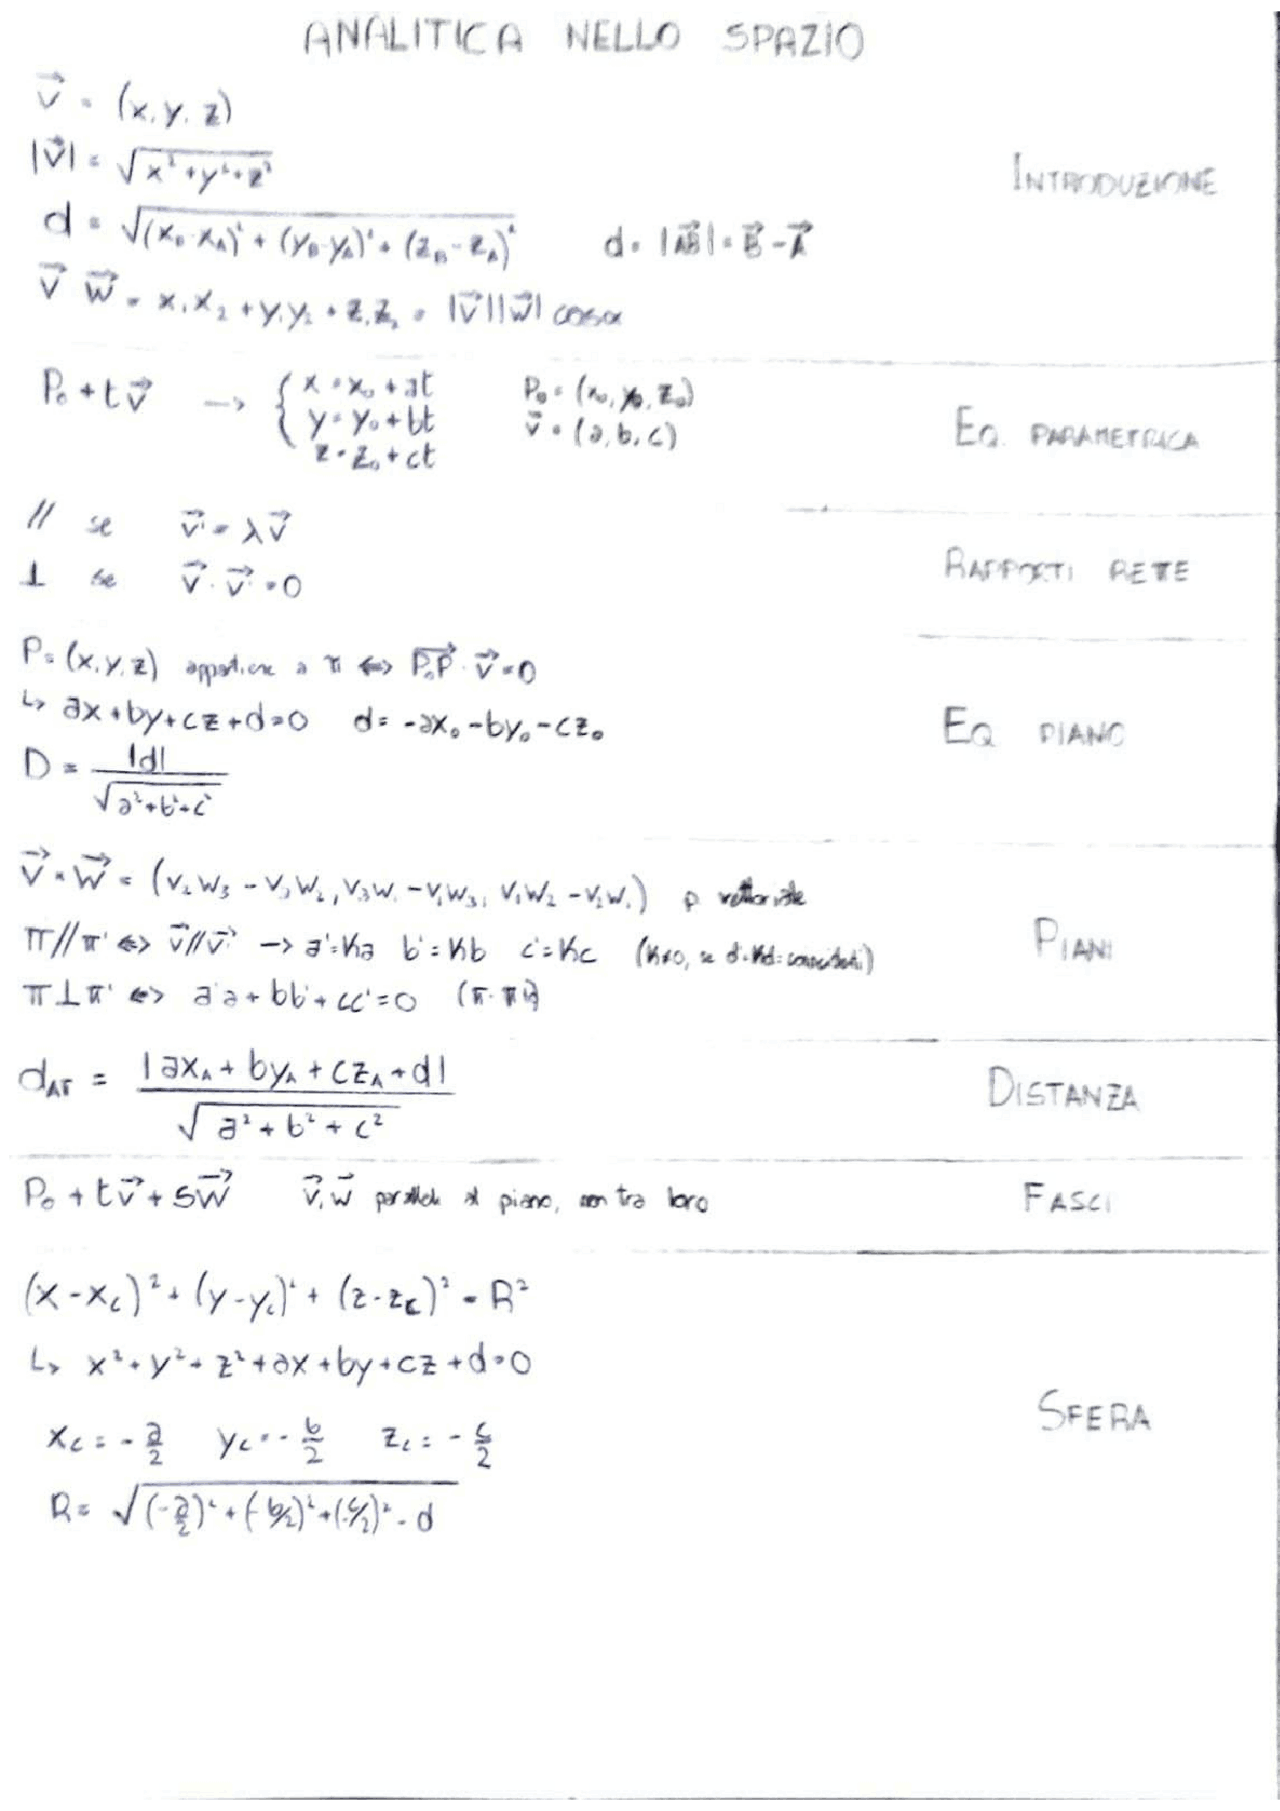 ANALITICA NELLO SPAZIO
v⃗ = (x, y, z)
|v⃗| = √(x² + y² + z²)
INTRODUZIONE
d = √((x_B - x_A)² + (y_B - y_A)² + (z_B - z_A)²) d = |AB⃗| = B⃗ - A⃗
v⃗ w⃗ = x₁x₂ + y₁y₂ + z₁z₂ = |v⃗||w⃗| cosα
P₀ + tv⃗ → { x = x₀ + at P₀ = (x₀, y₀, z₀)
y = y₀ + bt v⃗ = (a, b, c) EQ. PARAMETRICA
z = z₀ + ct
// se v⃗' = λv⃗
⊥ se v⃗ · v⃗' = 0 RAPPORTI RETTE
P = (x, y, z) appartiene a π ⇔ P₀P⃗ · v⃗ = 0
↳ ax + by + cz + d = 0 d = -ax₀ - by₀ - cz₀ EQ PIANO
D = |d| / √(a² + b² + c²)
v⃗ × w⃗ = (v₂w₃ - v₃w₂, v₃w₁ - v₁w₃, v₁w₂ - v₂w₁) p vettoriale
π // π' ⇔ v⃗ // v⃗' → a' = Ka b' = Kb c' = Kc (K≠0, se d'=Kd = coincidenti) PIANI
π ⊥ π' ⇔ a'a + bb' + cc' = 0 (π · π')
d_Aπ = |ax_A + by_A + cz_A + d| / √(a² + b² + c²) DISTANZA
P₀ + tv⃗ + sw⃗ v⃗, w⃗ paralleli al piano, non tra loro FASCI
(x - x_c)² + (y - y_c)² + (z - z_c)² = R²
↳ x² + y² + z² + ax + by + cz + d = 0
SFERA
x_c = - a/2 y_c = - b/2 z_c = - c/2
R = √((-a/2)² + (-b/2)² + (-c/2)² - d)